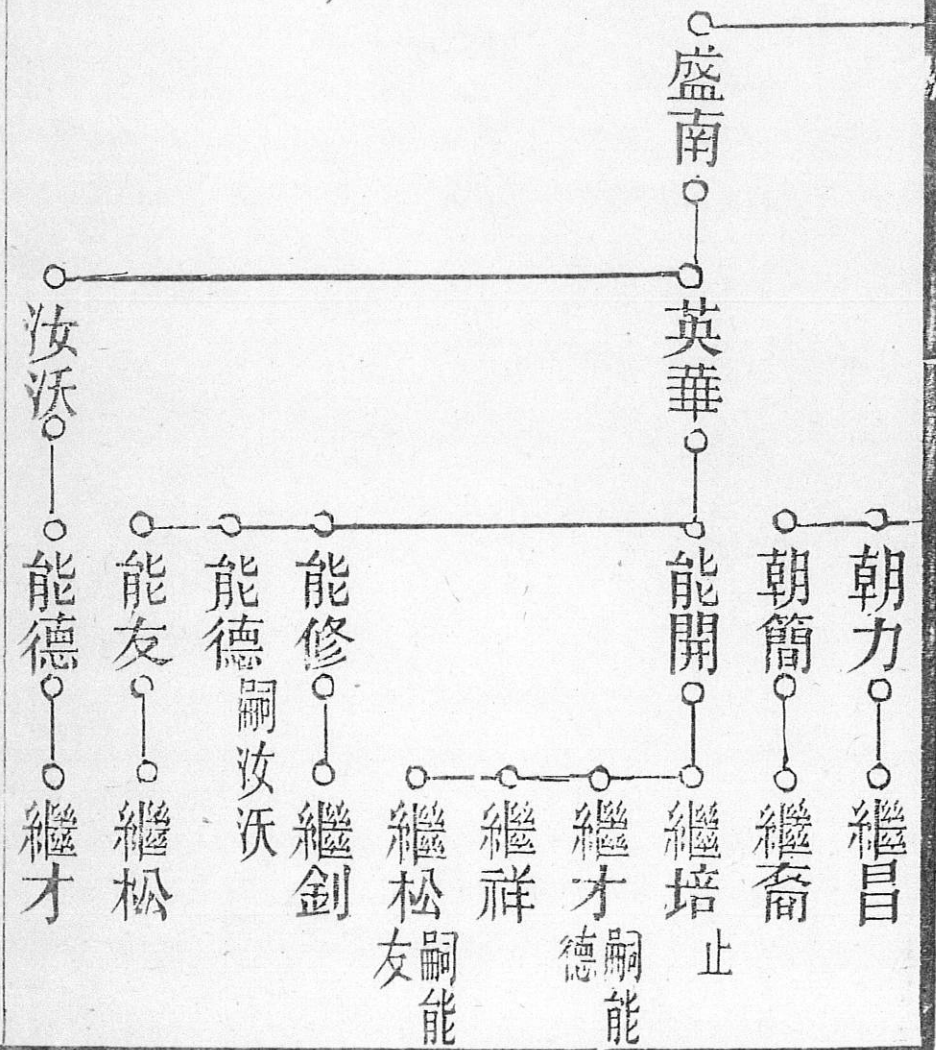 盛南
英華
汝沃
朝力
朝簡
能開
能修
能德
嗣汝沃
能友
能德
繼昌
繼裔
繼培
止
繼才
嗣能
德
繼祥
繼松
嗣能
友
繼釗
繼松
繼才